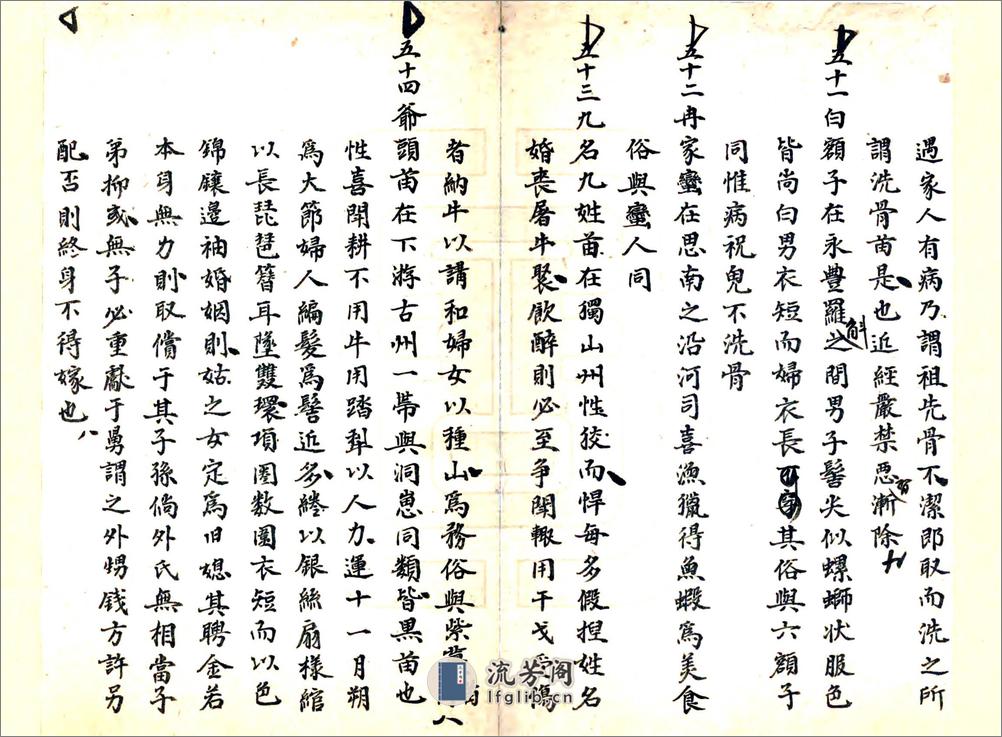 遇家人有病乃謂祖先骨不潔即取而洗之所
謂洗骨苗是也近經嚴禁惡習漸除
五十一白額子在永豐羅斛之間男子髻尖似螺螄状服色
皆尚白男衣短而婦衣長其俗與六額子
同惟病祝鬼不洗骨
五十二冉家蠻在思南之沿河司喜漁獵得魚蝦為美食
俗與蠻人同
五十三九名九姓苗在獨山州性狡而悍每多假捏姓名
婚喪屠牛聚飲醉則必至争鬥輙用干戈受傷
者納牛以謂和婦女以種山為務俗與紫薑苗
五十四爺頭苗在下游古州一帶與洞崽同類皆黑苗也
性喜開耕不用牛用踏犁以人力運十一月朔
為大節婦人編髮為髻近多綣以銀絲扇樣綰
以長琵琶簪耳墜雙環項圈数圍衣短而以色
錦鑲邊袖婚姻則姑之女定為旧媳其聘金若
本身無力則取償于其子孫倘外氏無相當子
弟抑或無子必重獻于舅謂之外甥錢方許另
配否則終身不得嫁也
流芳阁
lfglib.cn